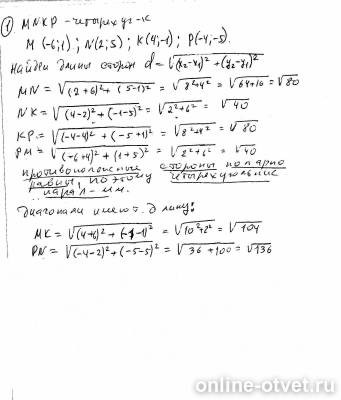 ① MNKP - четырехуг-к
M (-6;1); N(2;5); K(4;-1); P(-4;-5).
Найдем длины сторон d=√(x₂-x₁)²+(y₂-y₁)²
MN = √(2+6)²+(5-1)² = √8²+4² = √64+16 = √80
NK = √(4-2)²+(-1-5)² = √2²+6² = √40
KP = √(-4-4)²+(-5+1)² = √8²+4² = √80
PM = √(-6+4)²+(1+5)² = √2²+6² = √40
противоположные стороны попарно
равны, поэтому четырехугольник
парал-мм.
Диагонали имеют длину:
MK = √(4+6)²+(-1-1)² = √10²+2² = √104
PN = √(-4-2)²+(-5-5)² = √36+100 = √136
online-otvet.ru